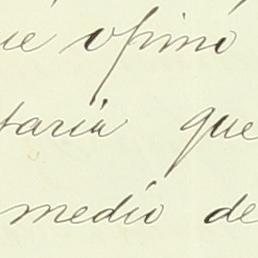 ue opinó
taria que
medio de